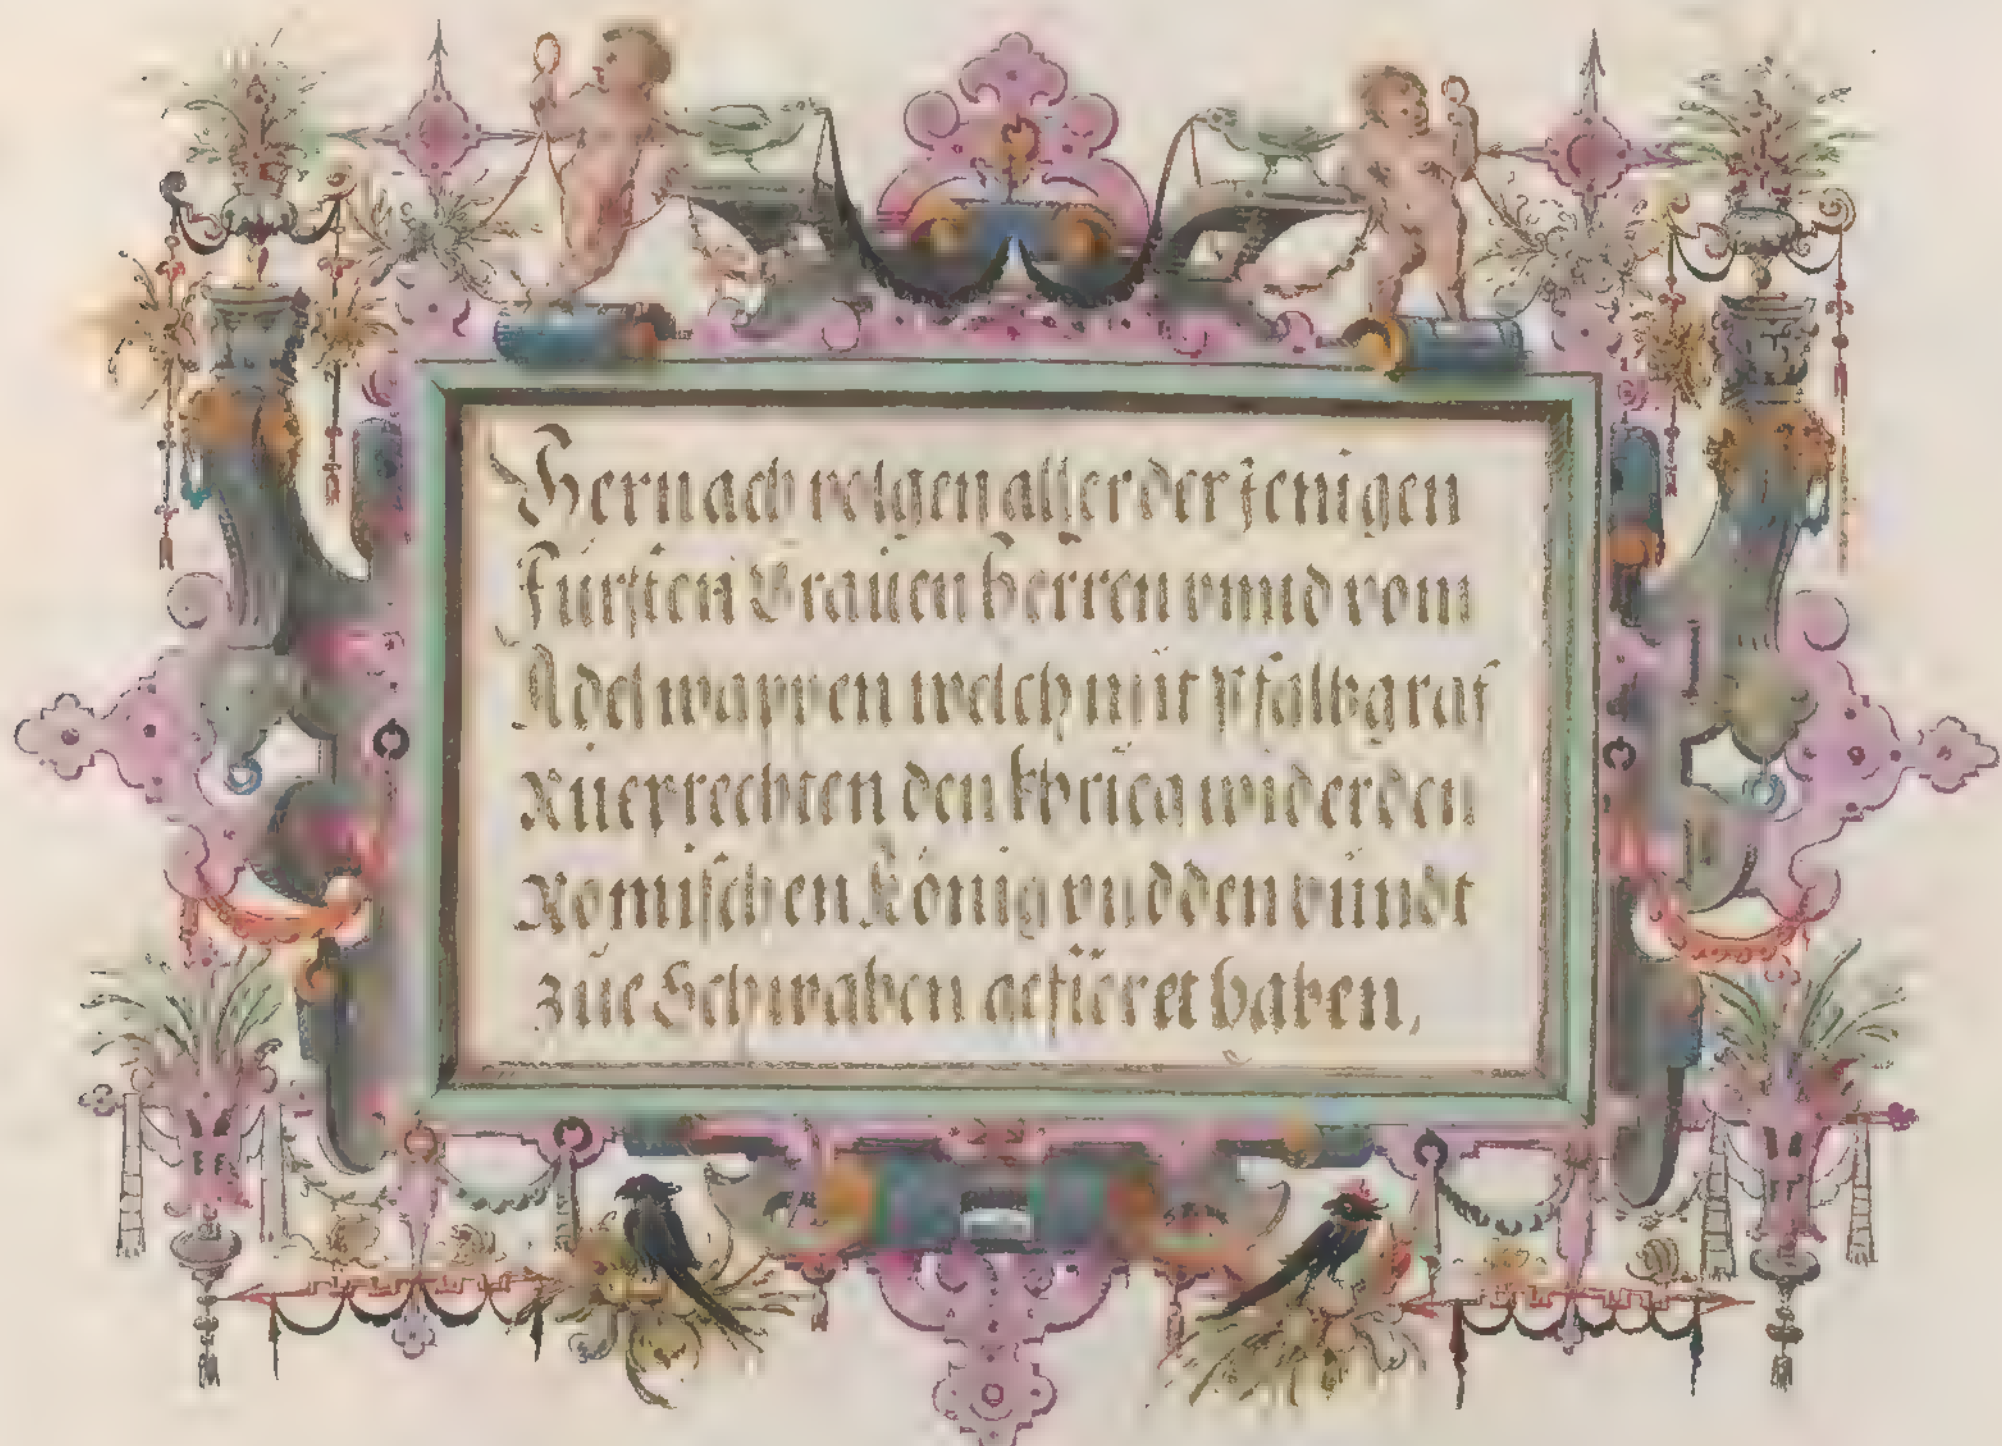 Hernach volgen aller der jenigen
Fürsten Graüen herren vnnd vom
Adel wappen welch mit Pfaltzgraf
Rüeprechten den khrieg wider den
Römischen König vnd den bündt
züe Schwaben gefüeret haben,